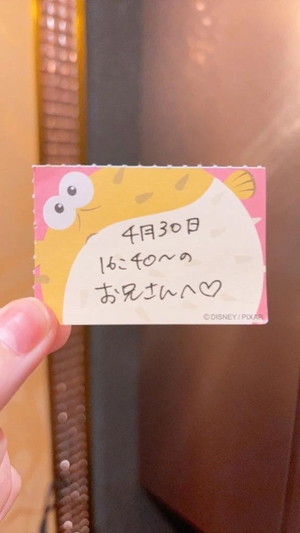 4月30日
16:40〜の
お兄さんへ♡
© DISNEY / PIXAR